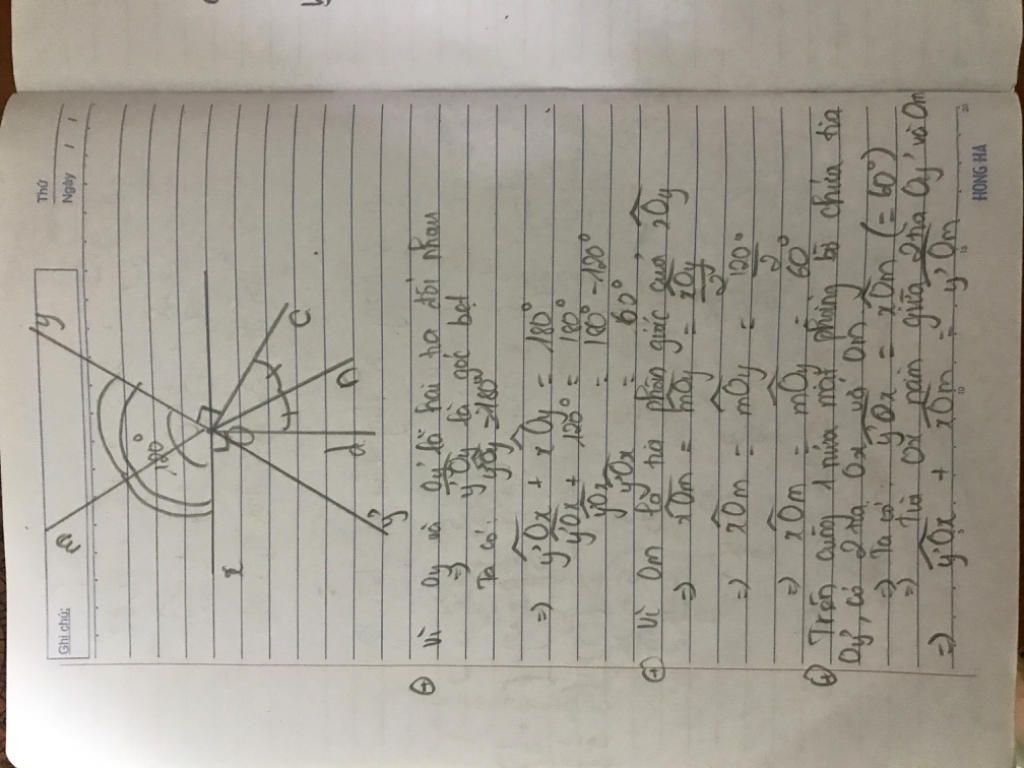 Ghi chú:
Thứ
Ngày / /
y
120°
O
x
y'
d
n
c
⊕ Vì Oy và Oy' là hai tia đối nhau
=> y'Oy là góc bẹt
Ta có: y'Oy = 180°
=> y'Ox + xOy = 180°
y'Ox + 120° = 180°
y'Ox = 180° - 120°
y'Ox = 60°
⊕ Vì Om là tia phân giác của xOy
=> xOm = mOy = xOy/2
=> xOm = mOy = 120°/2
=> xOm = mOy = 60°
⊕ Trên cùng 1 nửa mặt phẳng bờ chứa tia
Oy', có 2 tia Ox và Om
=> Ta có y'Ox = xOm (= 60°)
=> Tia Ox nằm giữa 2 tia Oy' và Om
=> y'Ox + xOm = y'Om
HONG HA